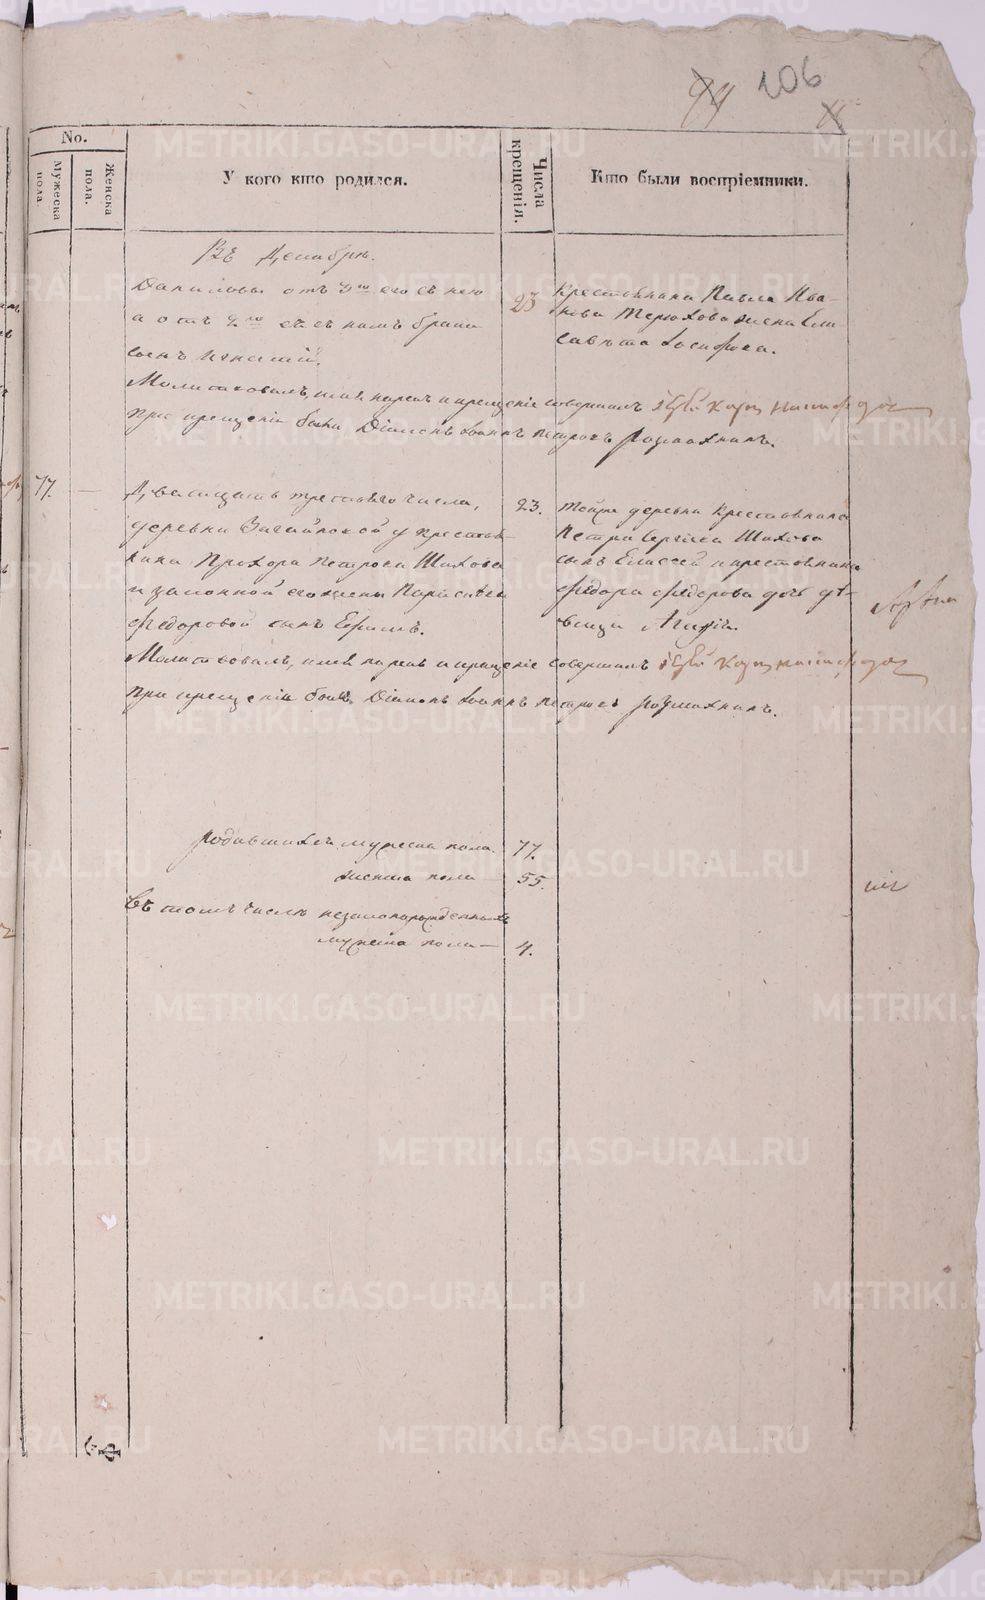 206
No.
Мужеска пола.
Женска пола.
У кого кто родился.
Числа крещенія.
Кто были воспріемники.
Въ Декабрѣ.
Даниловы отъ 3го его съ нею
а отъ 2го её съ нимъ брака
сынъ
23
Крестьянина Павла Ива-
нова Терюхова жена Ели-
савета Іосифова.
Молитвовалъ, имя нарекъ и крещеніе совершилъ
при крещеніи были Діаконъ Іоаннъ Петровъ
77.
Двадцать третьяго числа,
деревни у крестья-
нина Прохора Петрова Шихова
и законной его жены Параскевы
Федоровой сынъ Ефимъ.
23.
Тойже деревни Крестьянина
Петра Сергѣева Шихова
сынъ Елисей и крестьянина
Федора Федорова дочь дѣ-
вица
Молитвовалъ, имя нарекъ и крещеніе совершилъ
при крещеніи былъ Діаконъ Іоаннъ Петровъ
родившихся мужеска пола. 77.
женска пола 55.
Въ томъ числѣ незаконорожденныхъ
мужеска пола — 4.
METRIKI.GASO-URAL.RU